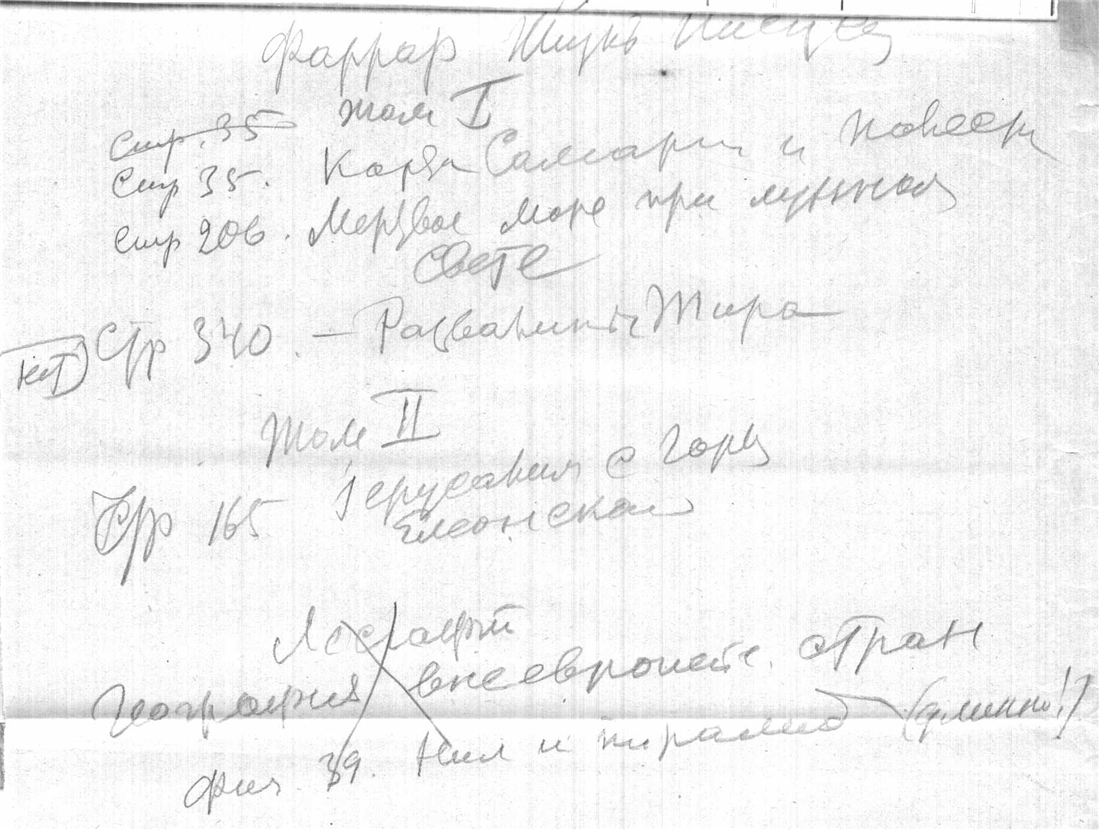 Фаррар Жизнь Иисуса
Том I
Стр. 35
Стр 35. Карта Самарии и
Стр 206. Мертвое море при лунном
свете
Стр 340. — Развалины Тира
нет
Том II
Стр 165 Іерусалим с горы
Елеонской
География внеевропейс. стран
Фиг. 39. Нил и пирамид (длинно!!)